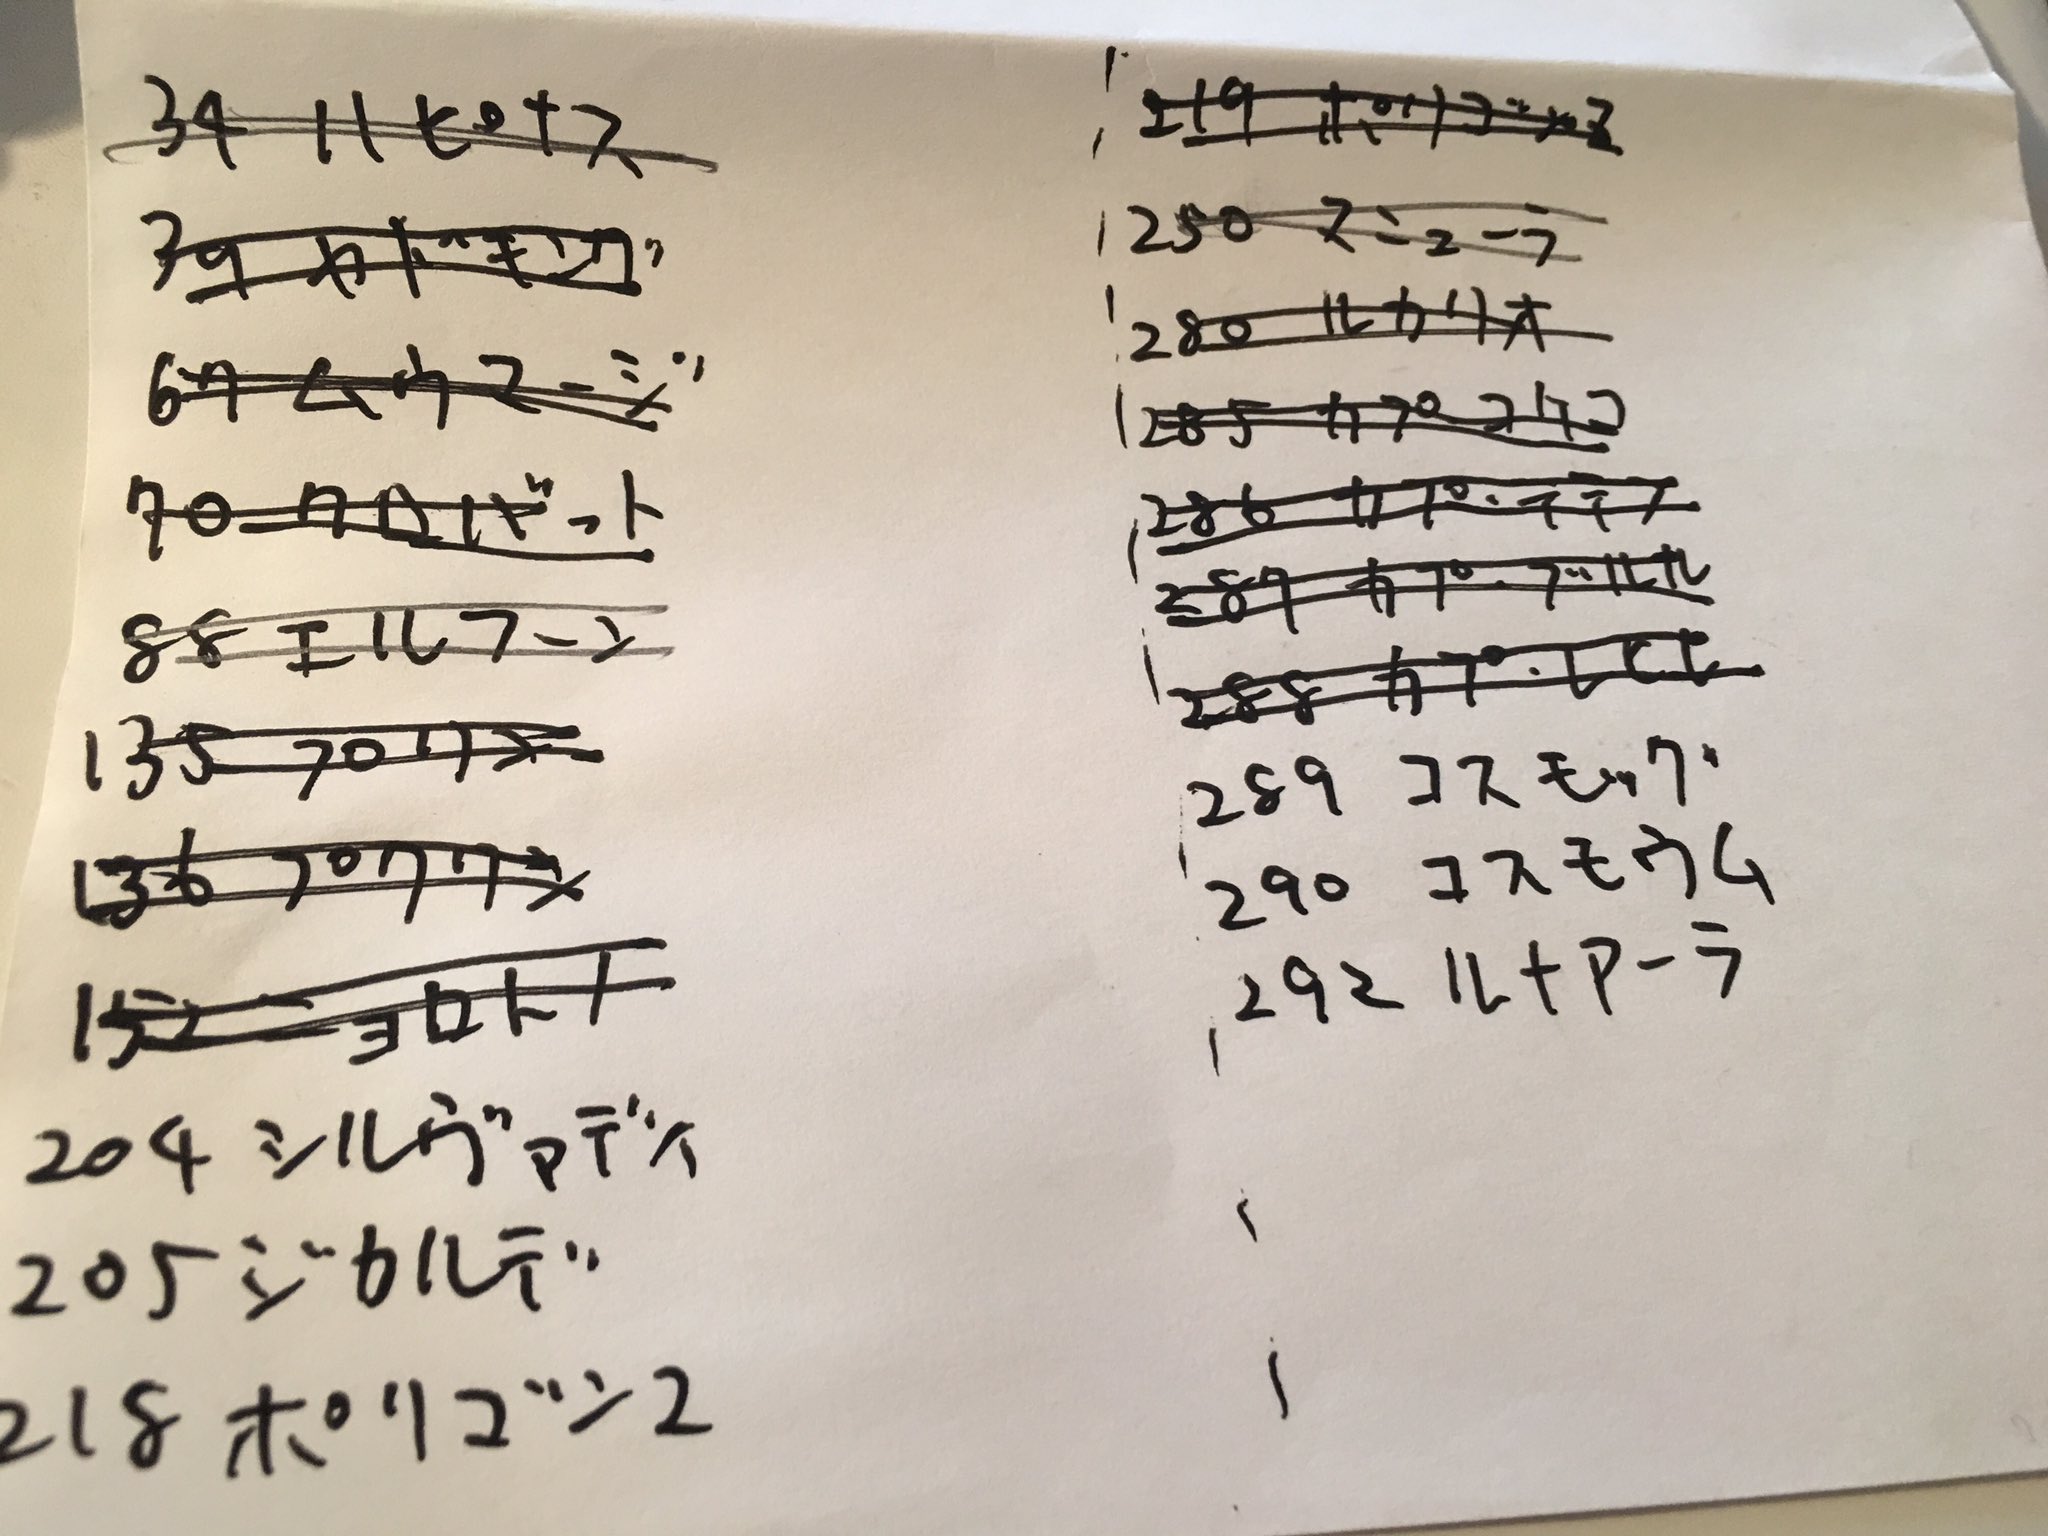 34 ハピナス
39 カドモング
67 ムウマージ
70 クロバット
88 エルフーン
135 プロリメ
136 プクリン
152 ヨロトト
204 シルヴァディ
205 ジガルデ
218 ポリゴン2
219 ポリゴンZ
250 マニューラ
280 ルカリオ
285 カプ・コケコ
286 カプ・テテフ
287 カプ・ブルル
288 カプ・レヒレ
289 コスモッグ
290 コスモウム
292 ルナアーラ